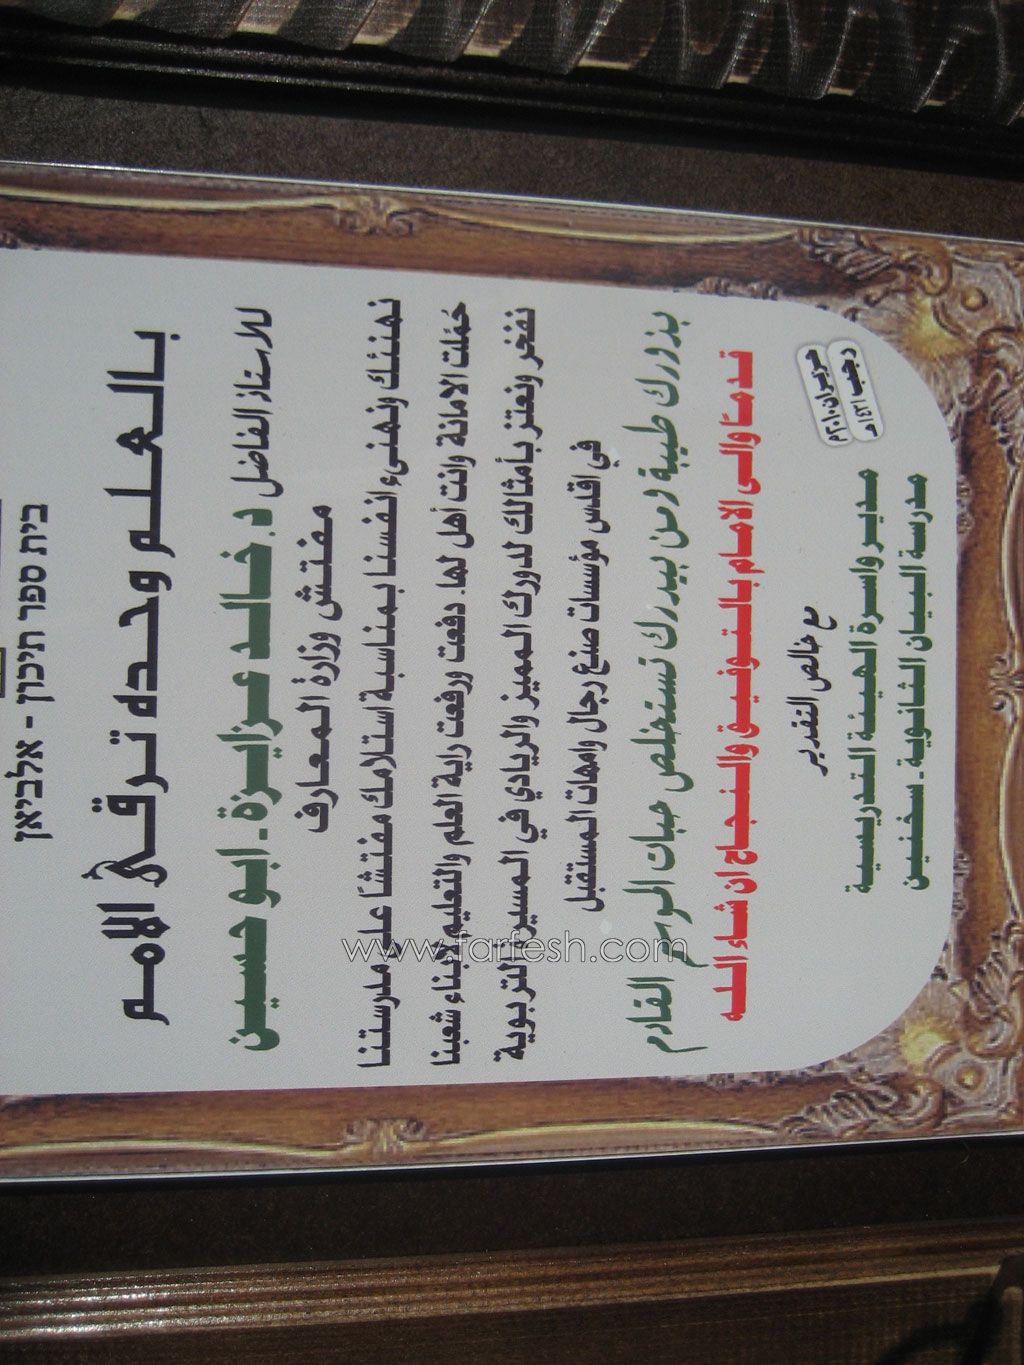 בית ספר תיכון - אלביאן
بالعلم وحده ترقى الامم
للاستاذ الفاضل د. خالد عزايزة - ابو حسين
مفتش وزارة المعارف
نهنئك ونهنىء انفسنا بمناسبة استلامك مفتشًا على مدرستنا
حُمّلت الامانة وانت أهل لها. دفعت ورفعت راية العلم والتعليم لأبناء شعبنا
نفخر ونعتز بأمثالك لدورك المميز والريادي في المسيرة التربوية
في اقدس مؤسسات صنع رجال وامهات المستقبل
بذورك طيبة ومن بيدرك نستخلص حبات الموسم القادم
قدمًا والى الامام بالتوفيق والنجاح ان شاء الله
مع خالص التقدير
مدير واسرة الهيئة التدريسية
مدرسة البيان الثانوية - سخنين
حزيران ٢٠١٠م
رجب ١٤٣١هـ
www.farfesh.com